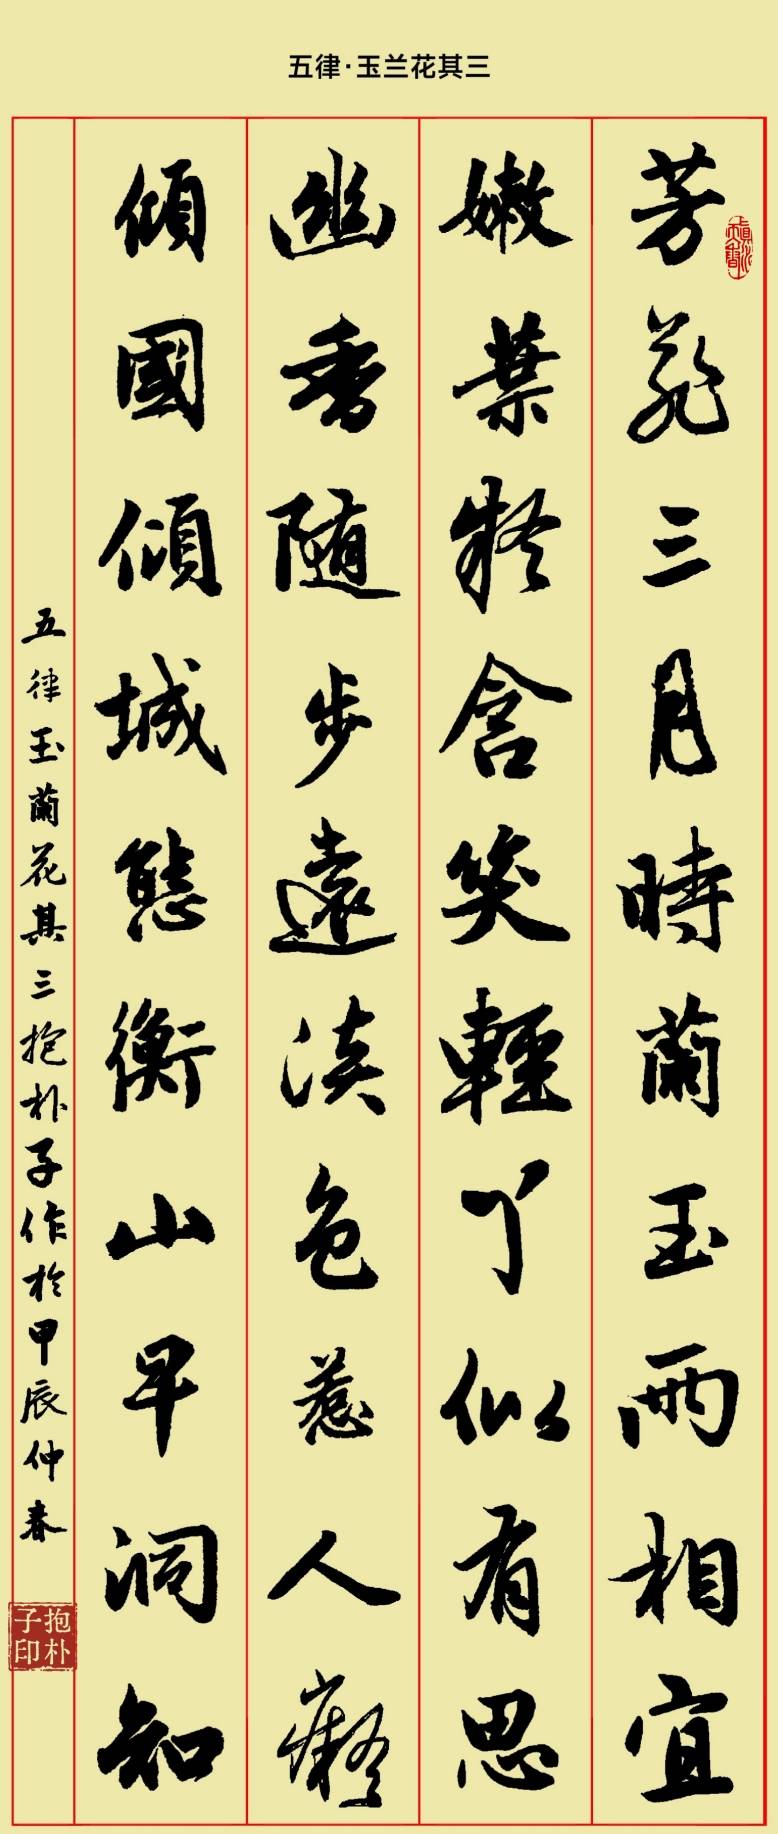 五律·玉兰花其三
芳菲三月時蘭玉兩相宜
嫩葉疑含笑輕丫似有思
幽香随步遠淡色惹人癡
傾國傾城態衡山早洞知
五律玉蘭花其三抱朴子作於甲辰仲春
抱朴
子印